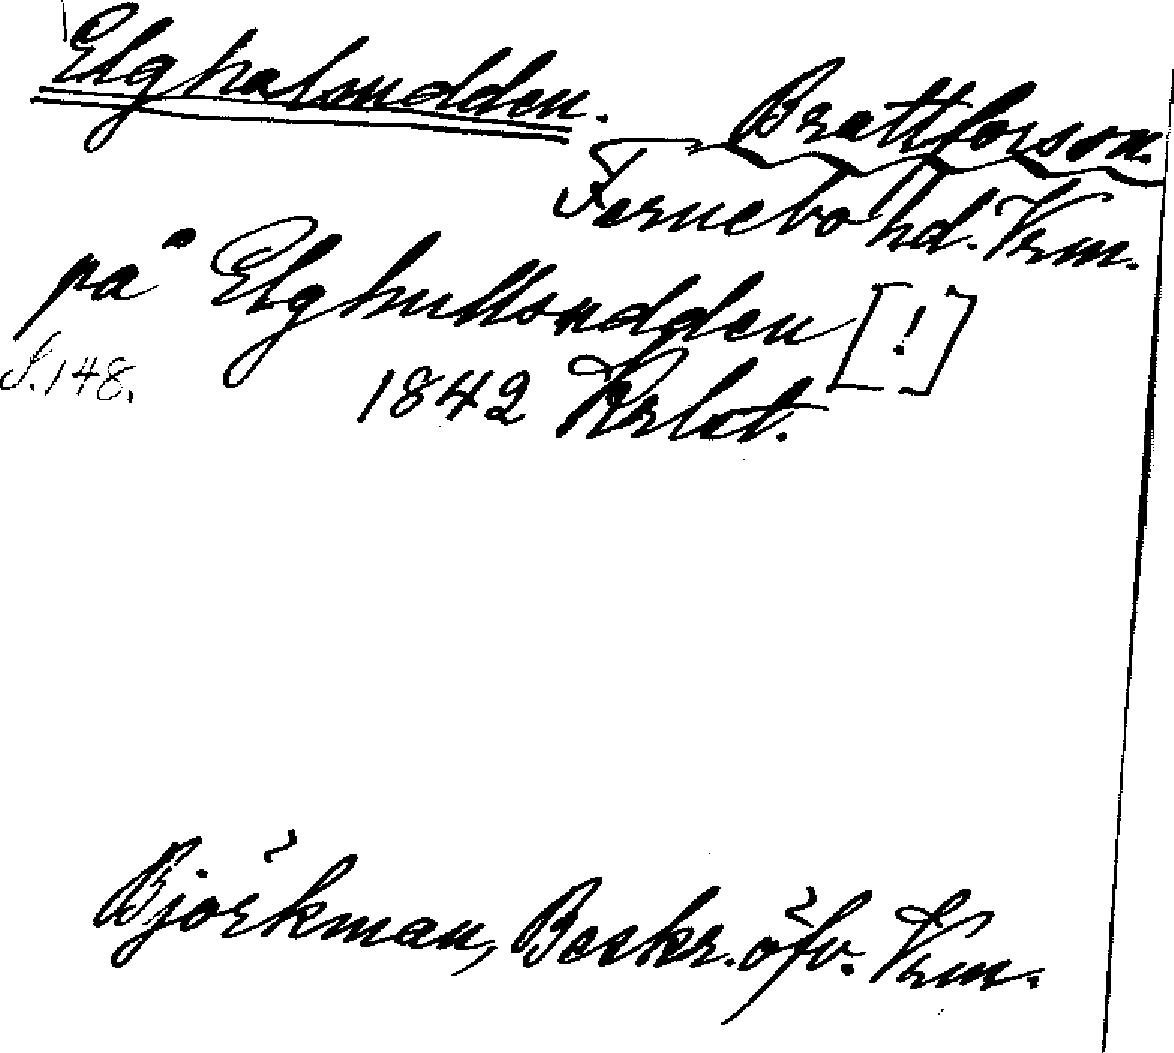 Elghalsudden. Brattforssn.
Fernebo hd. Vrm.
på Elghullsudden [!]
S. 148. 1842 Krlot.
Björkman, Beskr. öfv. Vrm.